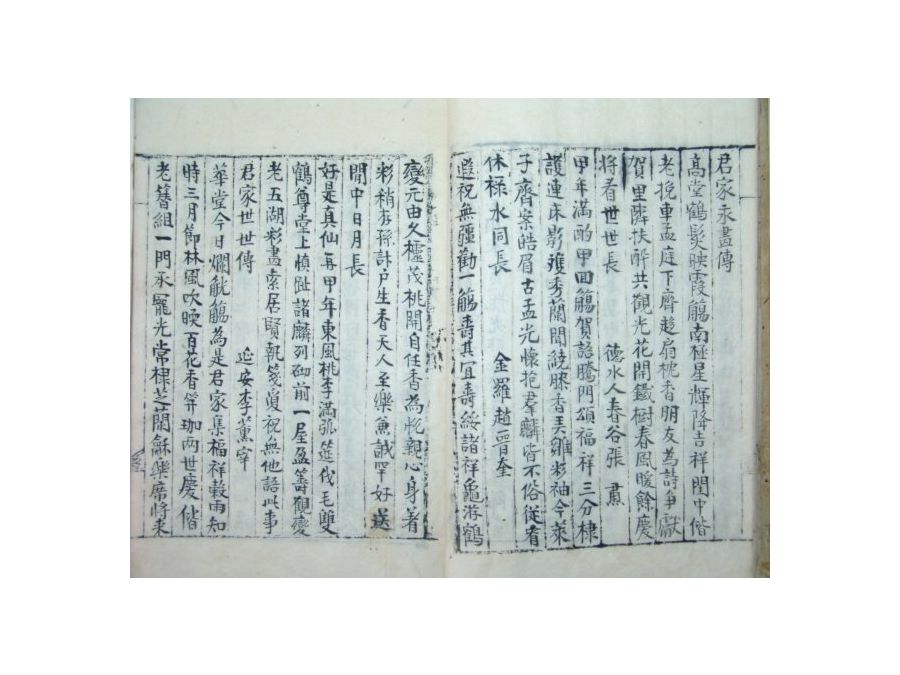 君家永畫傳
高堂鶴髮映霞觴南極星輝降吉祥閨中偕
老挽車孟庭下齊趍扇枕香朋友為詩爭獻
賀里隣扶醉共觀光花開鐵樹春風暖餘慶
將看世世長 德水人春谷張 肅
甲年滿酌甲回觴賀語騰門頌福祥三分棣
護連床影雙秀蘭聞繞膝香美雖彩袖今萊
子齊案皓眉古孟光懷抱羣麟皆不俗從看
休祿水同長 金羅趙晋奎
遐祝無疆勸一觴壽其宜壽綏諸祥龜游鶴
變元由久樗茂桃開自在香為悅親心身著
彩稍存孫計戶生香天人至樂兼誠罕好送
閒中日月長
好是真仙再甲年東風桃李滿張筵伐毛雙
鶴尊堂上慎趾諸麟列砌前一屋盈籌觀變
老五湖彩畫索居賢執箋復祝無他語此事
君家世世傳 延安李薰宰
華堂今日爛觥觴為是君家集福祥穀雨知
時三月節林風吹晚百花香筓珈兩世慶偕
老簪組一門承寵光常棣芝蘭龢樂席將來